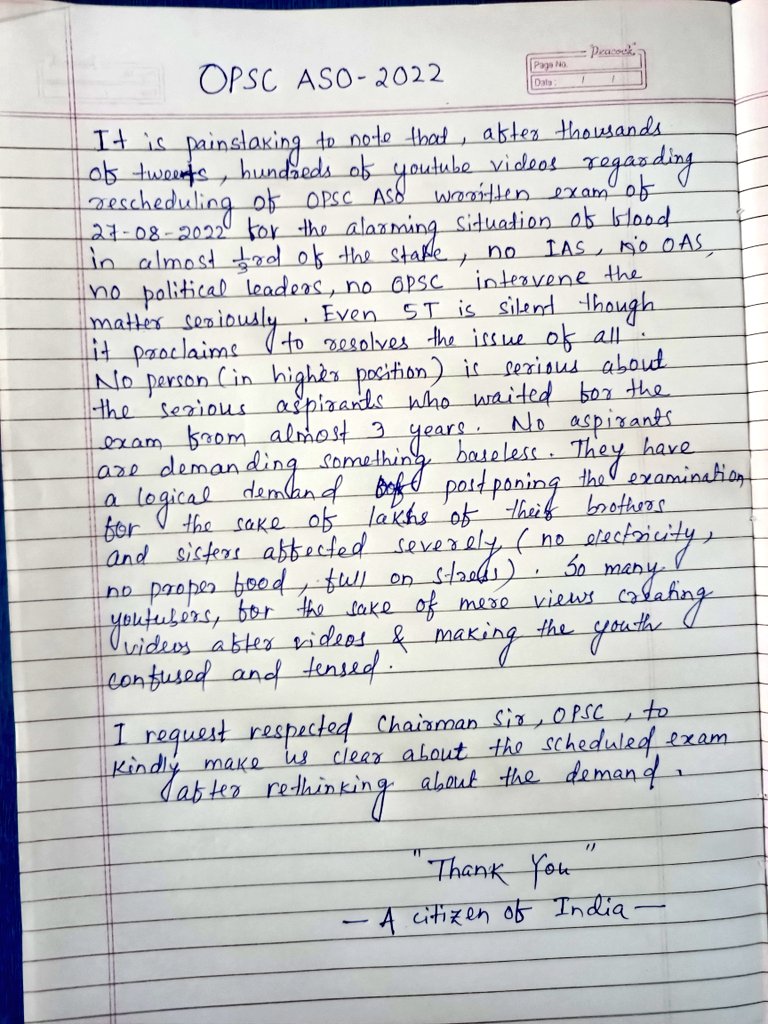 Peacock
Page No.
Date: / /
OPSC ASO-2022
It is painstaking to note that, after thousands
of tweets, hundreds of youtube videos regarding
rescheduling of OPSC ASO woritten exam of
27-08-2022 for the alarming situation of blood
in almost 1/3rd of the state, no IAS, no OAS,
no political leaders, no OPSC intervene the
matter seriously. Even 5T is silent though
it proclaims to resolves the issue of all.
No person (in higher position) is serious about
the serious aspirants who waited for the
exam from almost 3 years. No aspirants
are demanding something baseless. They have
a logical demand of postponing the examination
for the sake of lakhs of their brothers
and sisters affected severely (no electricity,
no proper food, full on stress). So many
youtubers, for the sake of mere views creating
videos after videos & making the youth
confused and tensed.
I request respected Chairman Sir, OPSC, to
kindly make us clear about the scheduled exam
after rethinking about the demand.
"Thank You"
— A citizen of India —